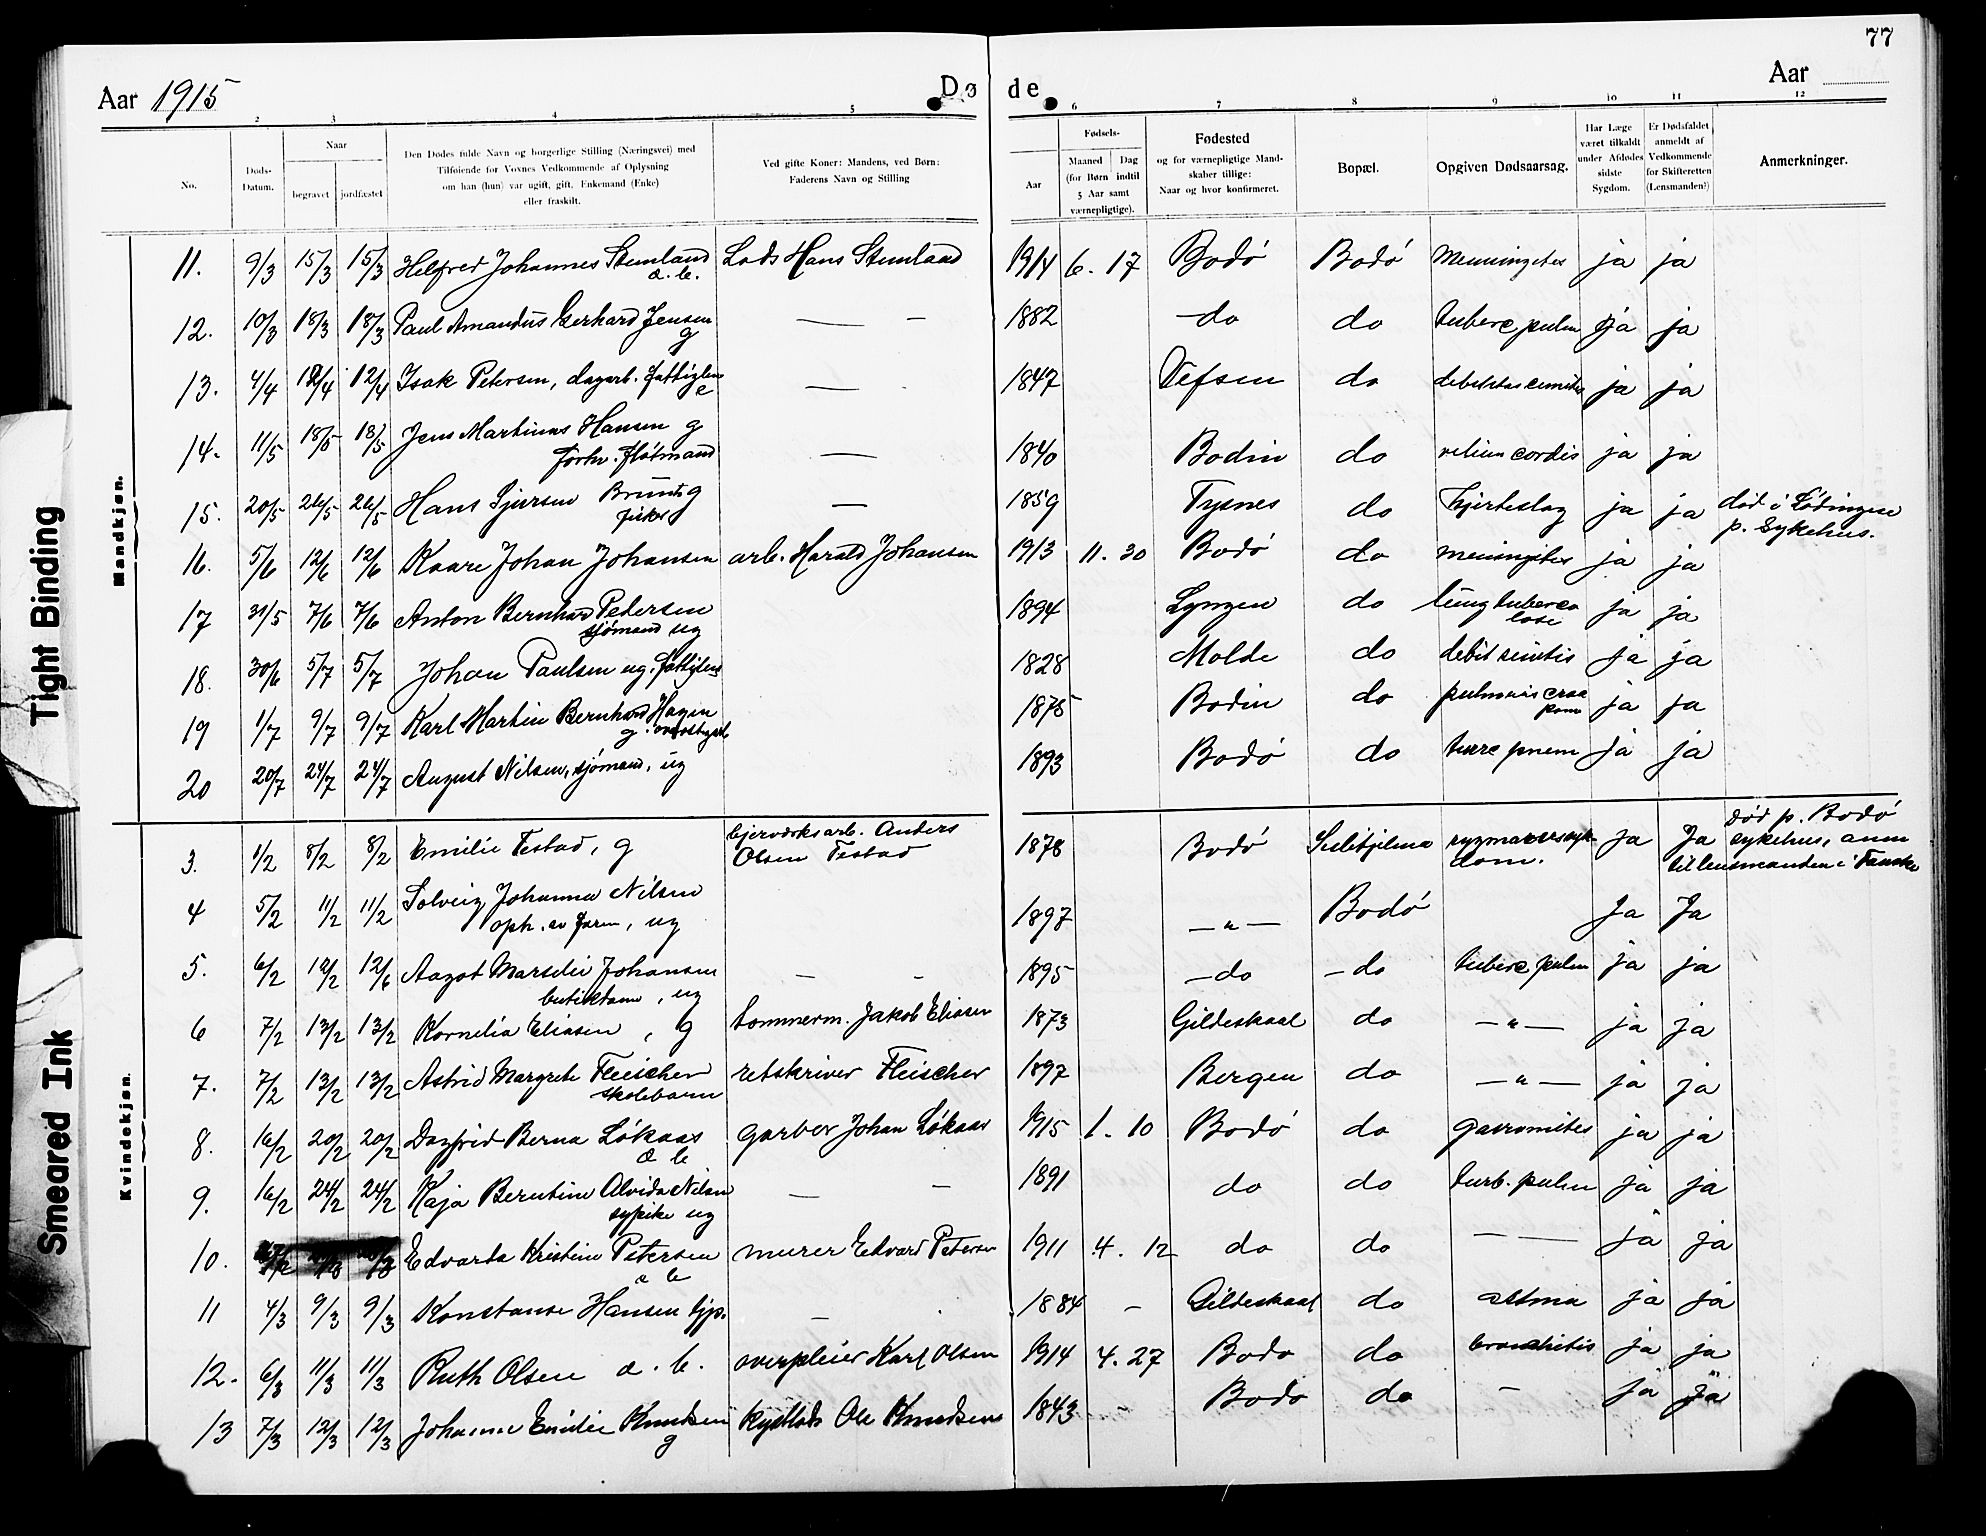 77
Aar 1915
Dø de
Aar
2 3 4 5 6 7 8 9 10 11 12
No.
Døds-Datum.
Naar
begravet jordfæstet
Den Dødes fulde Navn og borgerlige Stilling (Næringsvei) med
Tilføiende for Voxnes Vedkommende af Oplysning
om han (hun) var ugift, gift, Enkemand (Enke)
eller fraskilt.
Ved gifte Koner: Mandens, ved Børn:
Faderens Navn og Stilling
Fødsels-
Aar
Maaned Dag
(for Børn indtil
5 Aar samt
værnepligtige).
Fødested
og for værnepligtige Mand-
skaber tillige:
Naar og hvor konfirmeret.
Bopæl.
Opgiven Dødsaarsag.
Har Læge
været tilkaldt
under Afdødes
sidste
Sygdom.
Er Dødsfaldet
anmeldt af
Vedkommende
for Skifteretten
(Lensmanden?)
Anmerkninger.
Tight Binding
Smeared Ink
Mandkjøn.
11. 9/3 15/3 15/3 Helfred Johannes Stemland Lods Hans Stemland 1914 6. 17 Bodó Bodó Menningites ja ja
12. 10/3 18/3 18/3 Paul Amandus Gerhard Jensen — - 1882 -do do tuberc pulm ja ja
g
13. 4/4 12/4 12/4 Isak Petersen, dagarb. fattiglem — 1847 Vefsen do ja ja
e
14. 11/5 18/5 18/5 Jens Martinus Hansen g — 1840 Bodin do cordis ja ja
forh. fløtmand
15. 20/5 26/5 26/5 Hans Sjursen Bruns g — 1859 Tysnes do hjerteslag ja ja död i Lödingen
fisker p. sykehus.
16. 5/6 12/6 12/6 Kaare Johan Johansen arb. Harald Johansen 1913 11. 30 Bodó do meningites ja ja
17 31/5 7/6 7/6 Anton Bernhard Petersen 1894 Lyngen do lungtuberco
sjómand ug lose ja ja
18. 30/6 5/7 5/7 Johan Paulsen ug. fattiglem 1828 Molde do debit senitis ja ja
19 1/7 9/7 9/7 Karl Martin Bernhard Hagen 1875 Bodin do ja ja
g.
20 20/7 24/7 24/7 August Nilsen, sjómand, ug 1893 Bodó do ja ja
Kvindekjøn.
3. 1/2 8/2 8/2 Emilie Festad, g bjerværksarb. Anders
Olsen Festad 1878 Bodó Sulitjelma rygmarvssyk-
dom. ja Ja död p. Bodó
sykehus, anm
til lensmanden i Fauske
4 5/2 11/2 11/2 Solveig Johanna Nilsen 1897 —„— Bodó Ja Ja
oph. av faren, ug
5. 6/2 12/2 12/6 Aagot Marselie Johansen — - 1895 -do -do tuberc pulm ja ja
butikdame, ug
6 7/2 13/2 13/2 Kornelia Eliasen, g tommerm. Jakob Eliasen 1873 Gildeskaal do —„— ja ja
7. 7/2 13/2 13/2 Astrid Margrete Fleischer retskriver Fleischer 1897 Bergen do —„— ja ja
skolebarn
8. 16/2 20/2 20/2 Dagfrid Berna Lókaas garver Johan Lókaas 1915 1. 10 Bodó do ja ja
9. 16/2 24/2 24/2 Kaja Berntine Alvida Nilsen — - 1891 do do turb. pulm ja ja
sypike ug
10. Edvarda Kristine Petersen murer Edvard Petersen 1911 4. 12 do do — — ja ja
11 4/3 9/3 9/3 Konstanse Hansen tjp. - 1884 - Gildeskaal do astma ja ja
12. 6/3 11/3 11/3 Ruth Olsen Karl Olsen 1914 4. 27 Bodo do bronchitis ja ja
13 7/3 12/3 12/3 Johanne Emilie Knudsen kystlods Ole Knudsens 1843 - Bodo do - ja ja
g